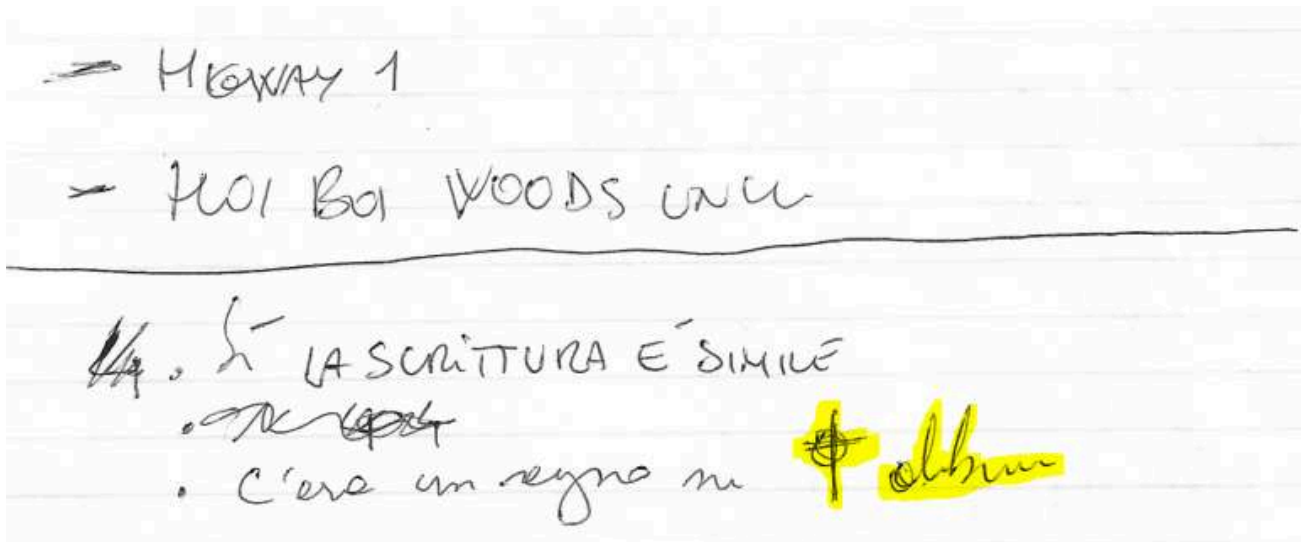 - HIGWAY 1
- HOI BOI WOODS
. Sì LA SCRITTURA È SIMILE
. C'era un segno su album